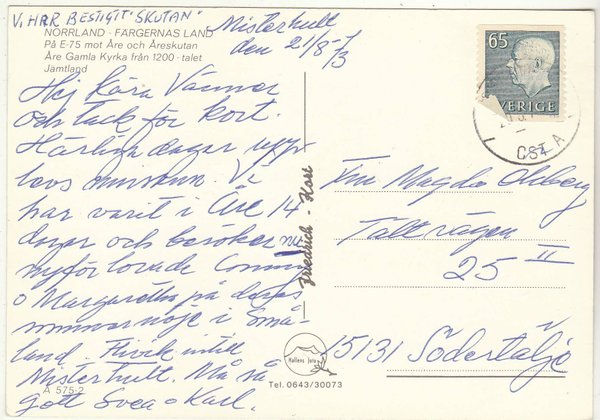 VI HAR BESTIGIT "SKUTAN"
NORRLAND · FÄRGERNAS LAND
På E-75 mot Åre och Åreskutan
Åre Gamla Kyrka från 1200-talet
Jämtland
Misterhult
den 21/8-73
Hej kära Vänner
och tack för kort.
Härliga dagar upp-
levs minsann. Vi
har varit i Åre 14
dagar och besöker nu
nyförlovade Conny
o Margaretha på deras
sommarnöje i Små-
land. Flivik intill
Misterhult. Må så
gott Svea o Karl.
A 575-2
Friedrich - Kort
Hallens foto
Tel. 0643/30073
65
SVERIGE
CSZ A
Fru Magda Ohberg
Tallvägen
25 II
15131 Södertälje